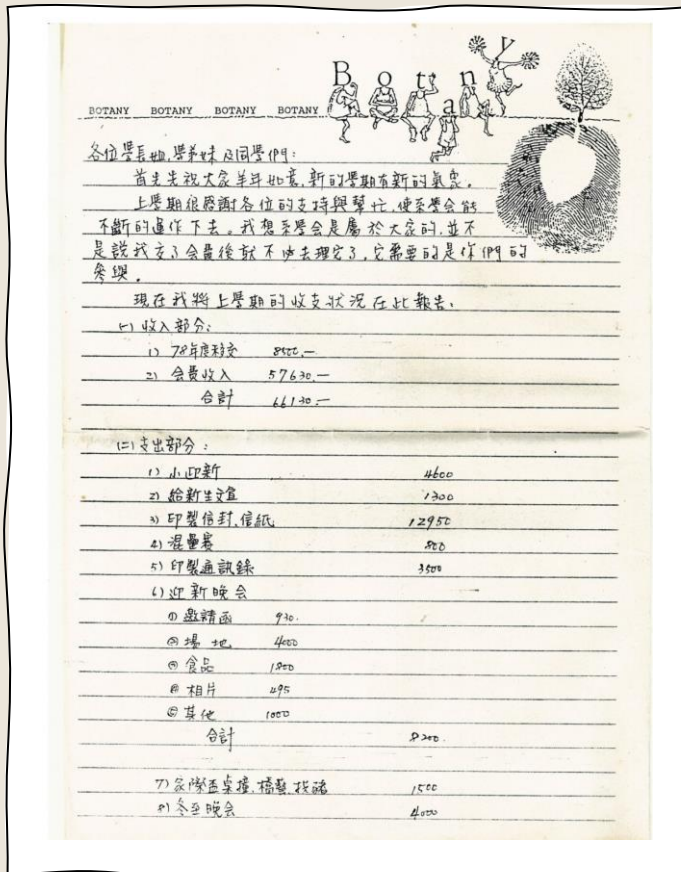 Botany
BOTANY BOTANY BOTANY BOTANY
各位學長姐,學弟妹及同學們:
首先先祝大家羊年如意,新的學期有新的氣象.
上學期很感謝各位的支持與幫忙,使系學会能
不斷的運作下去。我想系學会是屬於大家的,並不
是說我交了会費後就不必去理它了,它需要的是你們的
參與.
現在我將上學期的收支狀況在此報告.
(一)收入部分:
1) 78年度移交 8500.—
2) 会費收入 57630.—
合計 66130.—
(二)支出部分:
1) 小迎新 4600
2) 給新生文宣 1300
3) 印製信封,信紙 12950
4) 混壘賽 800
5) 印製通訊錄 3500
6) 迎新晚会
① 邀請函 930.
② 場地 4000
③ 食品 1800
④ 相片 495
⑤ 其他 1000
合計 8200.
7) 系際盃桌撞,橋藝 1500
8) 冬至晚会 4000